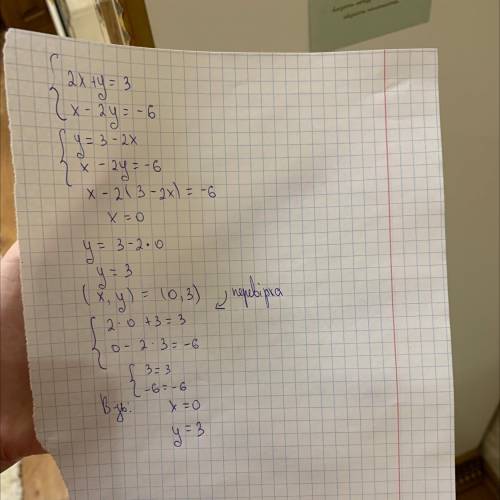 2x+y=3
x-2y=-6
y=3-2x
x-2y=-6
x-2(3-2x)=-6
x=0
y=3-2•0
y=3
(x,y)=(0,3)
перевірка
2·0+3=3
0-2·3=-6
3=3
-6=-6
x=0
y=3